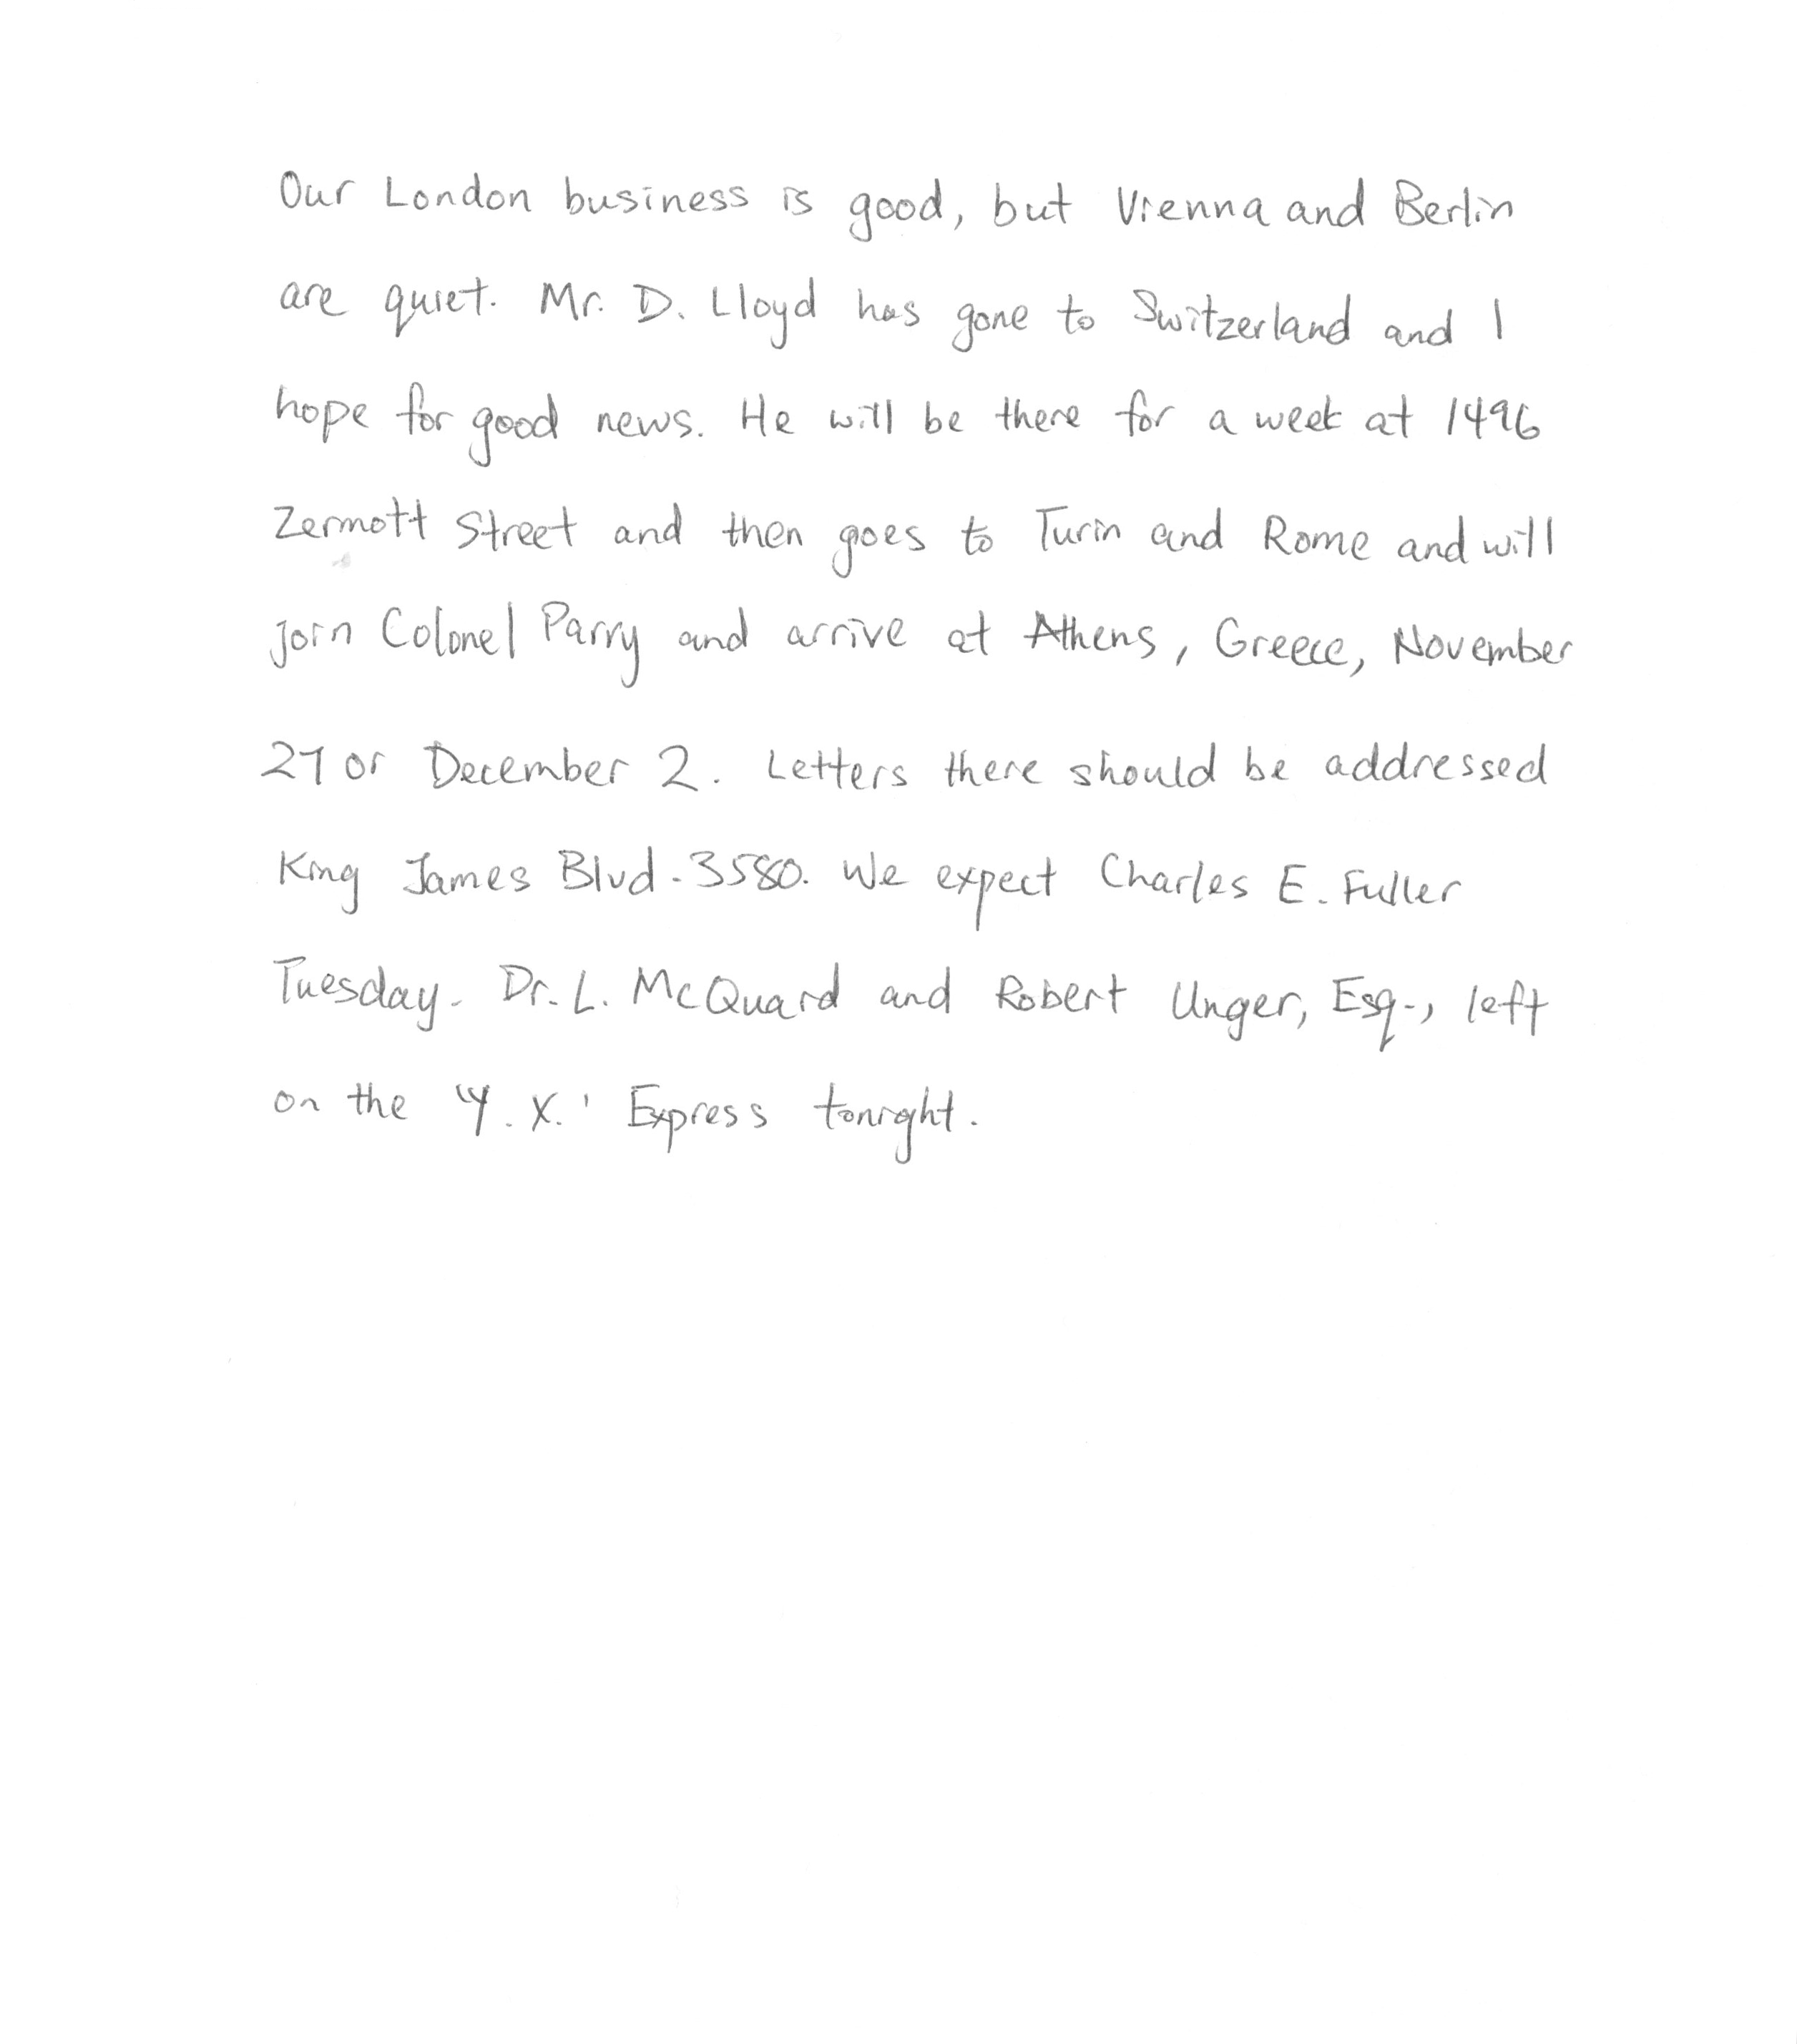 Our London business is good, but Vienna and Berlin
are quiet. Mr. D. Lloyd has gone to Switzerland and I
hope for good news. He will be there for a week at 1496
Zermott Street and then goes to Turin and Rome and will
join Colonel Parry and arrive at Athens, Greece, November
27 or December 2. Letters there should be addressed
King James Blvd. 3580. We expect Charles E. Fuller
Tuesday. Dr. L. McQuard and Robert Unger, Esq., left
on the "Y. X.' Express tonight.